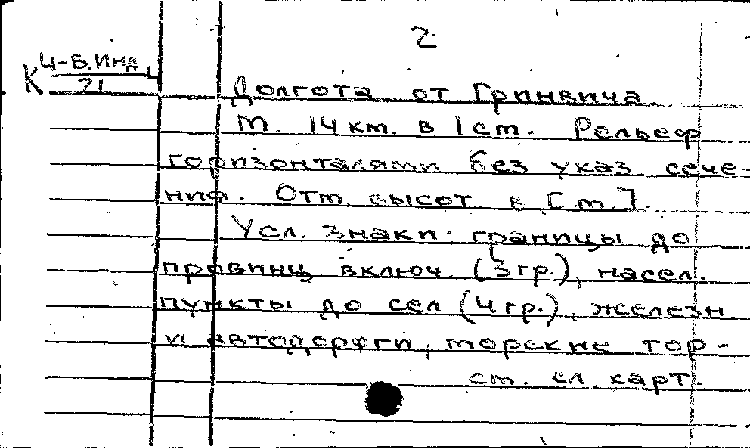 2
К 4-Б.Инд
21
4
Долгота от Гринвича.
М. 14 км. в 1 см. Рельеф
горизонталями без указ. сече-
ния. Отм. высот в [м.].
Усл. знаки: границы до
провинц включ. (3 гр.), насел.
пункты до сел (4 гр.), железн
и автодороги, морские тор-
см. сл. карт.